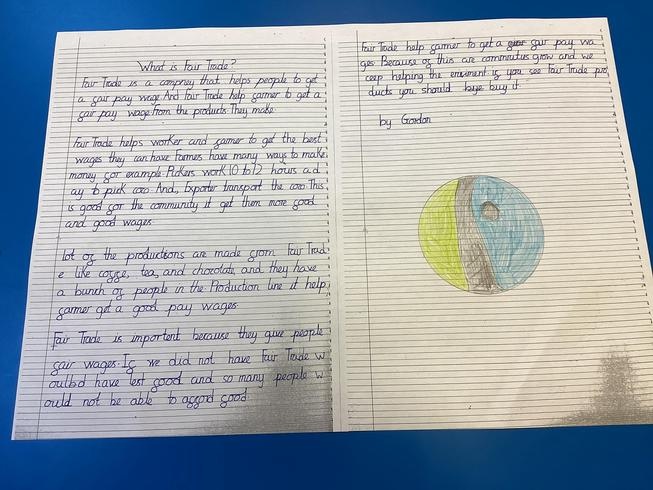 What is Fair Trade?
Fair Trade is a compney that helps people to get
a fair pay wage. And Fair Trade help farmer to get a
fair pay wage from the products They make.
Fair Trade helps worker and farmer to get the best
wages they can have Farmes have many ways to make
money for example. Pickers work 10 to 12 hours a d
ay to pick coco. And, Exporter transport the coco. This
is good for the community it get them more food
and good wages
lot of the productions are made from Fair Trad
e like coffe, tea, and chocolate, and they have
a bunch of people in the Production line it help
farmer get a good pay wages
Fair Trade is importent because they give people
fair wages. If we did not have Fair Trade w
oulbd have lest food and so many people w
ould not be able to afford food
Fair Trade help farmer to get a fair pay wa
ges. Because of this are commnutus grow and we
ceep helping the if you see Fair Trade pro
ducts you should buy it.
by Gordon